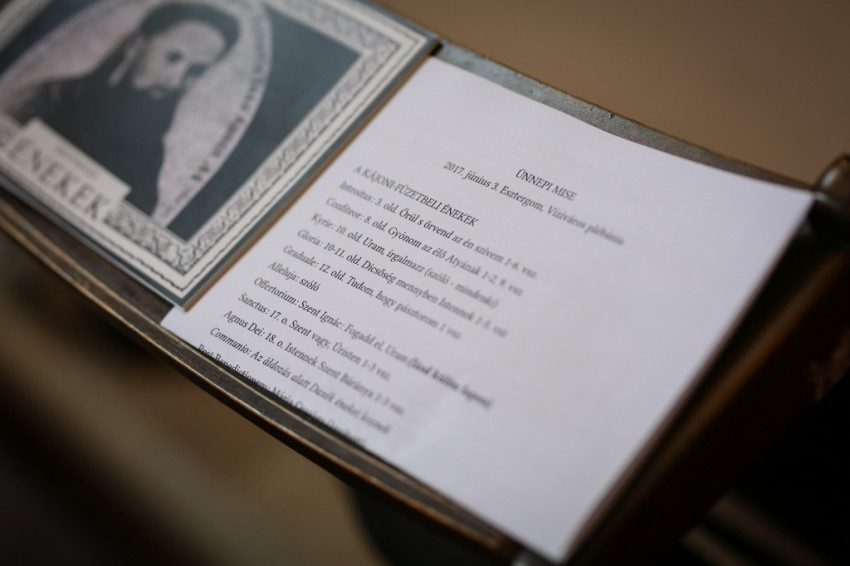 ÉNEKEK
ÜNNEPI MISE
2017. június 3. Esztergom, Vízíváros plébánia
A KÁJONI-FÜZETBELI ÉNEKEK
Introitus: 3. old. Örül s örvend az én szívem 1-6. vsz.
Confiteor: 8. old. Gyónom az élő Atyának 1-2, 9. vsz.
Kyrie: 10. old. Uram, irgalmazz (szóló - mindenki)
Gloria: 10-11. old. Dicsőség mennyben Istennek 1-5. vsz.
Graduale: 12. old. Tudom, hogy pásztorom 1 vsz.
Alleluja: szóló
Offertorium: Szent Ignác: Fogadd el, Uram (lásd külön lapon)
Sanctus: 17. o. Szent vagy, Úristen 1-3 vsz.
Agnus Dei: 18. o. Istennek Szent Báránya 1-3 vsz.
Communio: Az áldozás alatt Dicsék énekei lesznek
Post Benedictionem: Mária